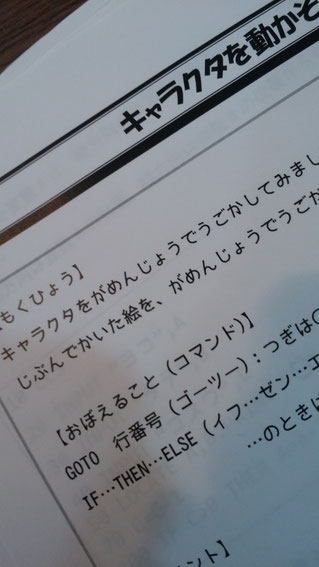 キャラクタを動かそ
もくひょう】
キャラクタをがめんじょうでうごかしてみまし
じぶんでかいた絵を、がめんじょうでうごか
【おぼえること（コマンド）】
GOTO 行番号（ゴーツー）：つぎは
IF…THEN…ELSE（イフ…ゼン…エ
…のときに
ント】